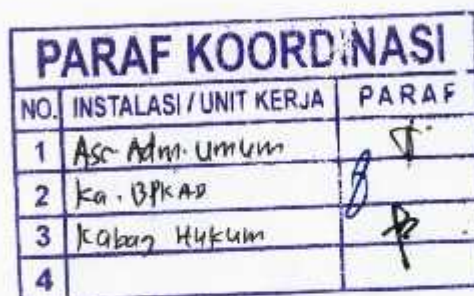 PARAF KOORDINASI
NO. INSTALASI / UNIT KERJA PARAF
1 Asr Adm. umum
2 Ka. BPKAD
3 Kabag Hukum
4